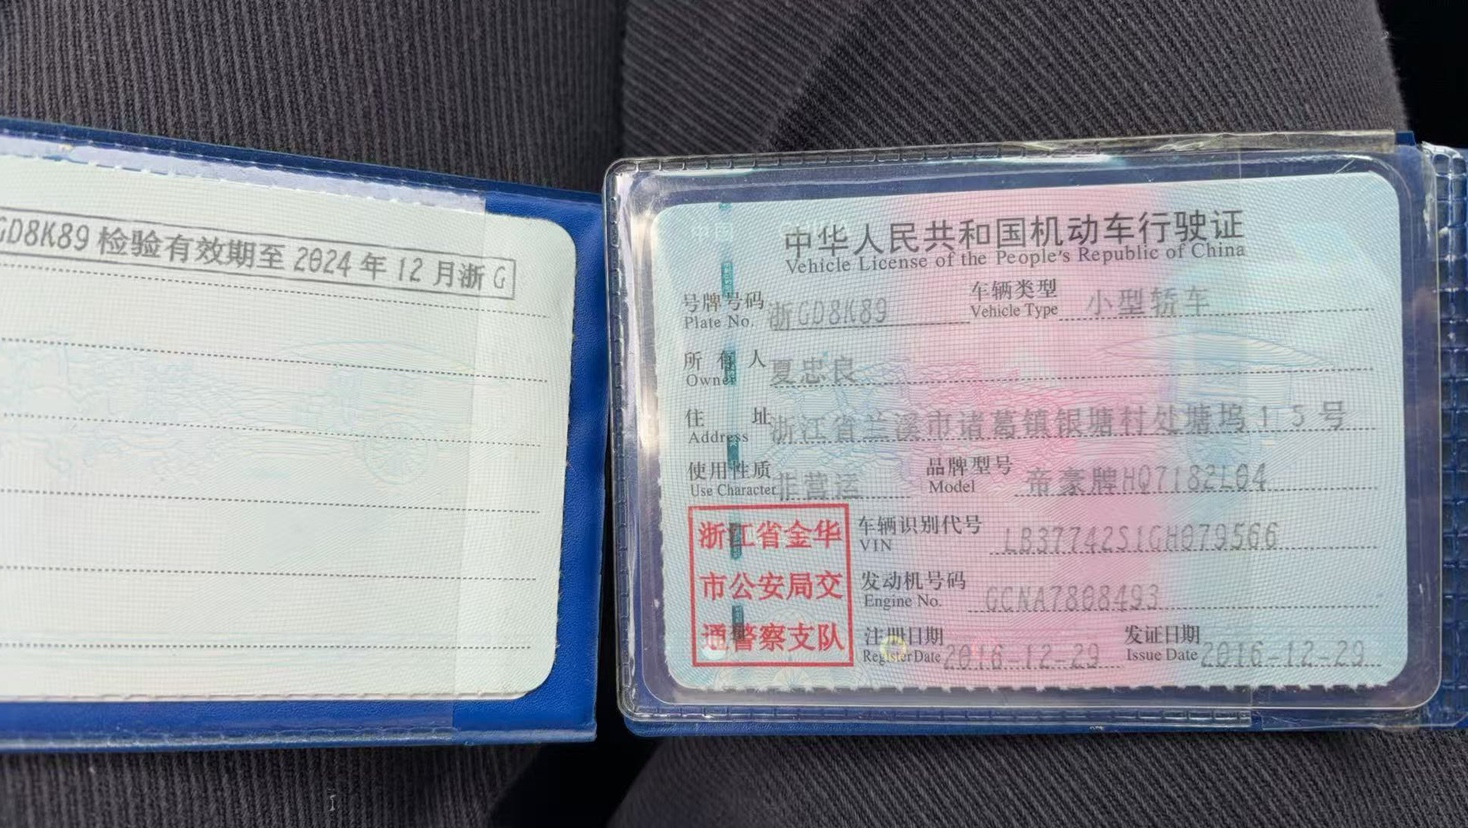 GD8K89 检验有效期至 2024 年 12 月浙 G
中华人民共和国机动车行驶证
Vehicle License of the People's Republic of China
号牌号码 浙GD8K89 车辆类型 小型轿车
Plate No. Vehicle Type
所有人 夏忠良
Owner
住址 浙江省兰溪市诸葛镇银塘村处塘坞15号
Address
使用性质 非营运 品牌型号 帝豪牌HQ7182L04
Use Character Model
浙江省金华
市公安局交
通警察支队
车辆识别代号 LB37742S1GH079566
VIN
发动机号码 GCNA7808493
Engine No.
注册日期 2016-12-29 发证日期 2016-12-29
Register Date Issue Date